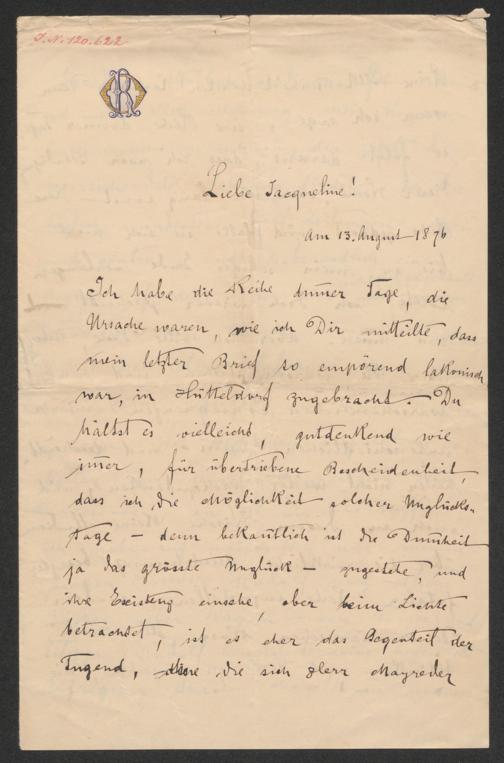 J.N. 120.622
Liebe Jacqueline!
Am 13. August 1876
Ich habe die Reihe dummer Tage, die
Ursache waren, wie ich Dir mitteilte, dass
mein letzter Brief so empörend lakonisch
war, in Hütteldorf zugebracht. Du
hältst es vielleicht, gutdenkend wie
im̅er, für übertriebene Bescheidenheit,
dass ich die Möglichkeit solcher Unglücks-
tage – denn bekan̅tlich ist die Dum̅heit
ja das grösste Unglück – zugestehe, und
ihre Existenz einsehe, aber beim Lichte
betrachtet, ist es eher das Gegenteil der
Tugend, die sich Herr Mayreder